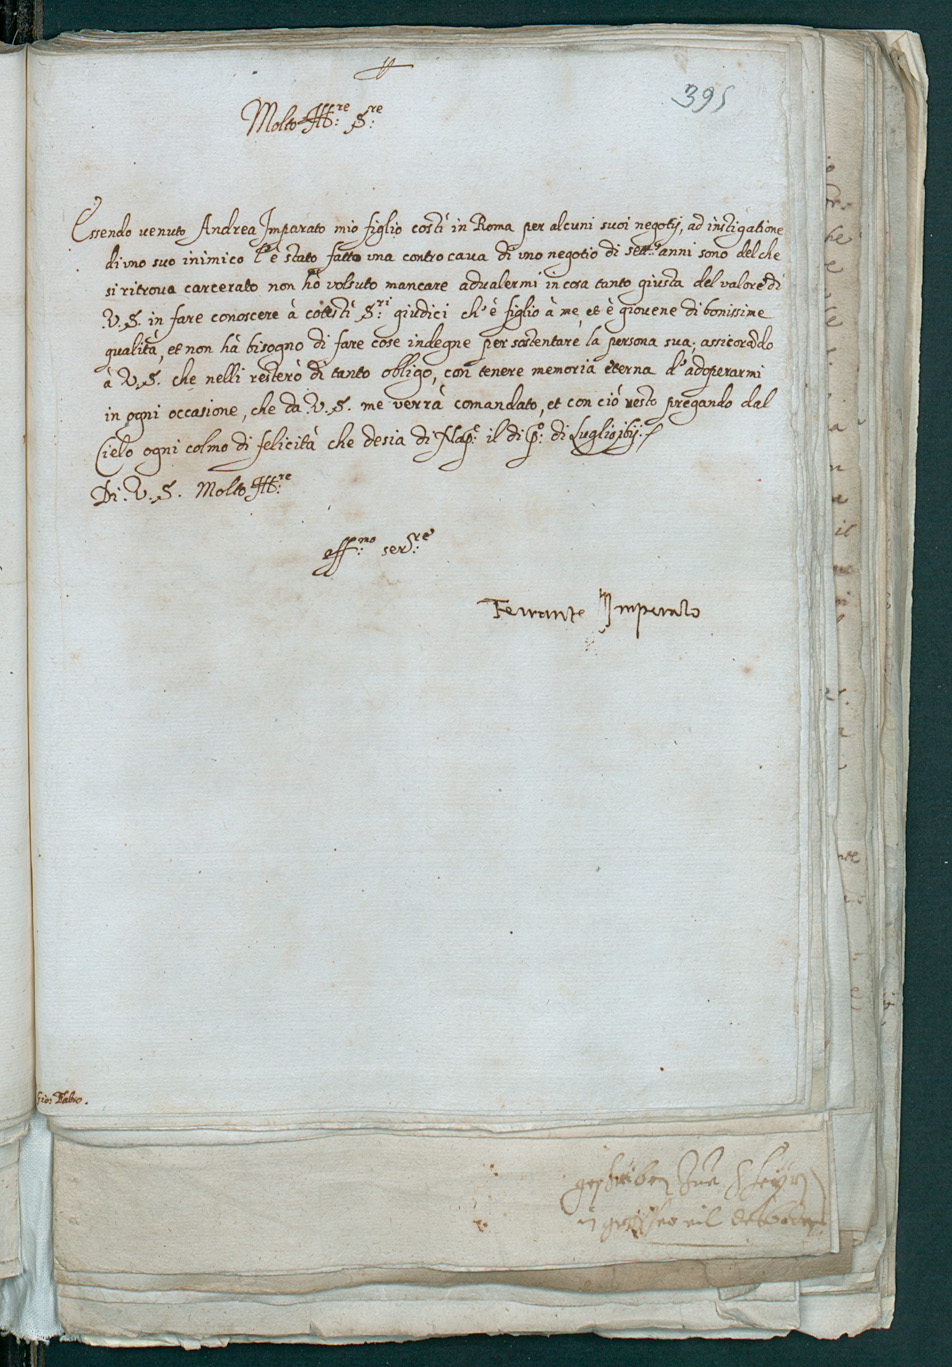 395
Molto Ill:re S:re
Essendo venuto Andrea Imparato mio figlio costì in Roma per alcuni suoi negotij, ad instigatione
di uno suo inimico l'è stato fatto una contro cava di uno negotio di sett:e anni sono del che
si ritrova carcerato non hò volsuto mancare advalermi in cosa tanto giusta del valore di
V.S. in fare conoscere à cotesti S:ri giudici ch'è figlio à me et è giovene di bonissime
qualità, et non hà bisogno di fare cose indegne per sostentare la persona sua; assicorãdo
à V.S. che nelli resterò di tanto obligo, con tenere memoria eterna d'adoperarmi
in ogni occasione, che da V.S. me verrà comandato, et con ciò resto pregando dal
Cielo ogni colmo di felicità che desia di Nap:e il di p:o di Luglio
Di V.S. Molto Ill:re
aff:mo ser:re
Ferrante Imperato
Fabio.